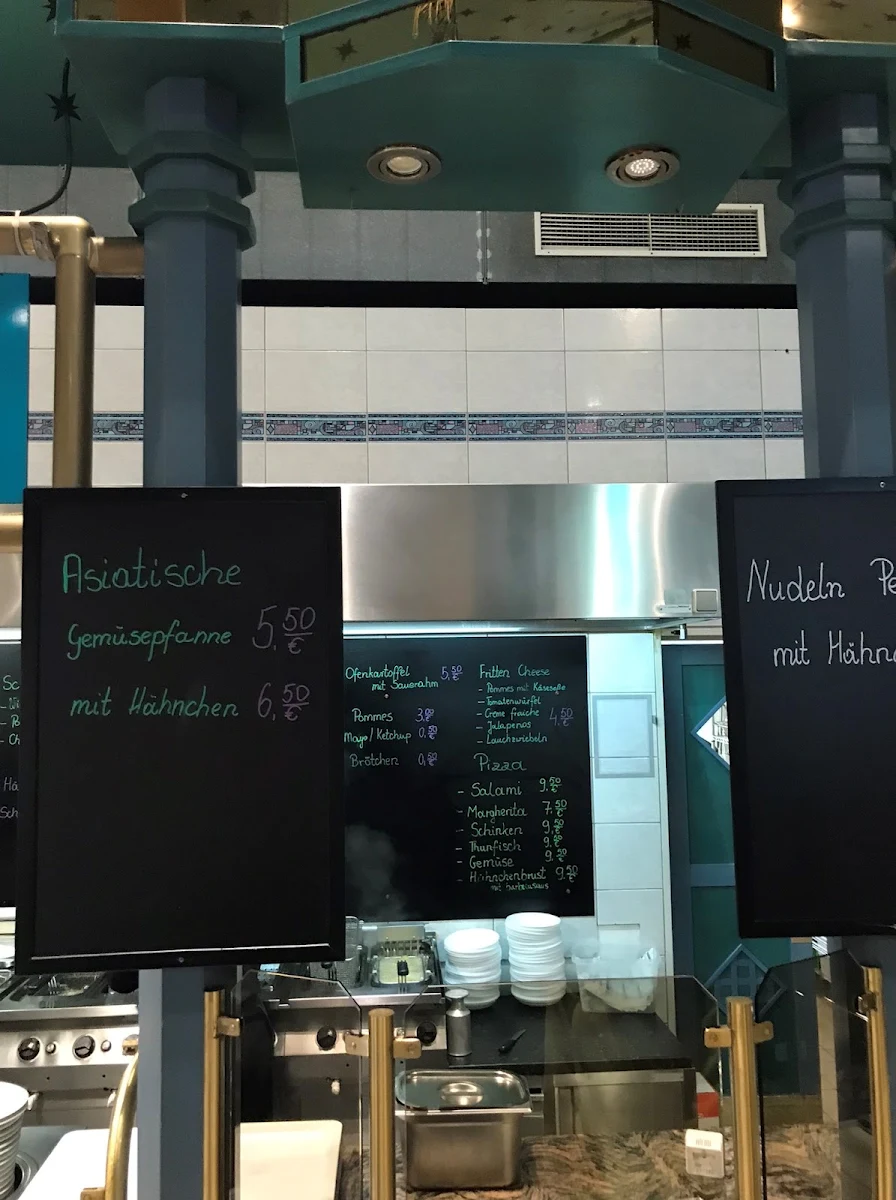 Asiatische
Gemüsepfanne 5,50 €
mit Hähnchen 6,50 €
Ofenkartoffel 5,50 €
mit Sauerrahm
Pommes 3,00 €
Mayo/Ketchup 0,50 €
Brötchen 0,50 €
Fritten Cheese
- Pommes mit Käsesoße
- Tomatenwürfel
- Creme fraiche 4,50 €
- Jalapenos
- Lauchzwiebeln
Pizza
- Salami 9,50 €
- Margherita 7,50 €
- Schinken 9,50 €
- Thunfisch 9,50 €
- Gemüse 9,50 €
- Hähnchenbrust 9,50 €
Nudeln Pe
mit Hähn